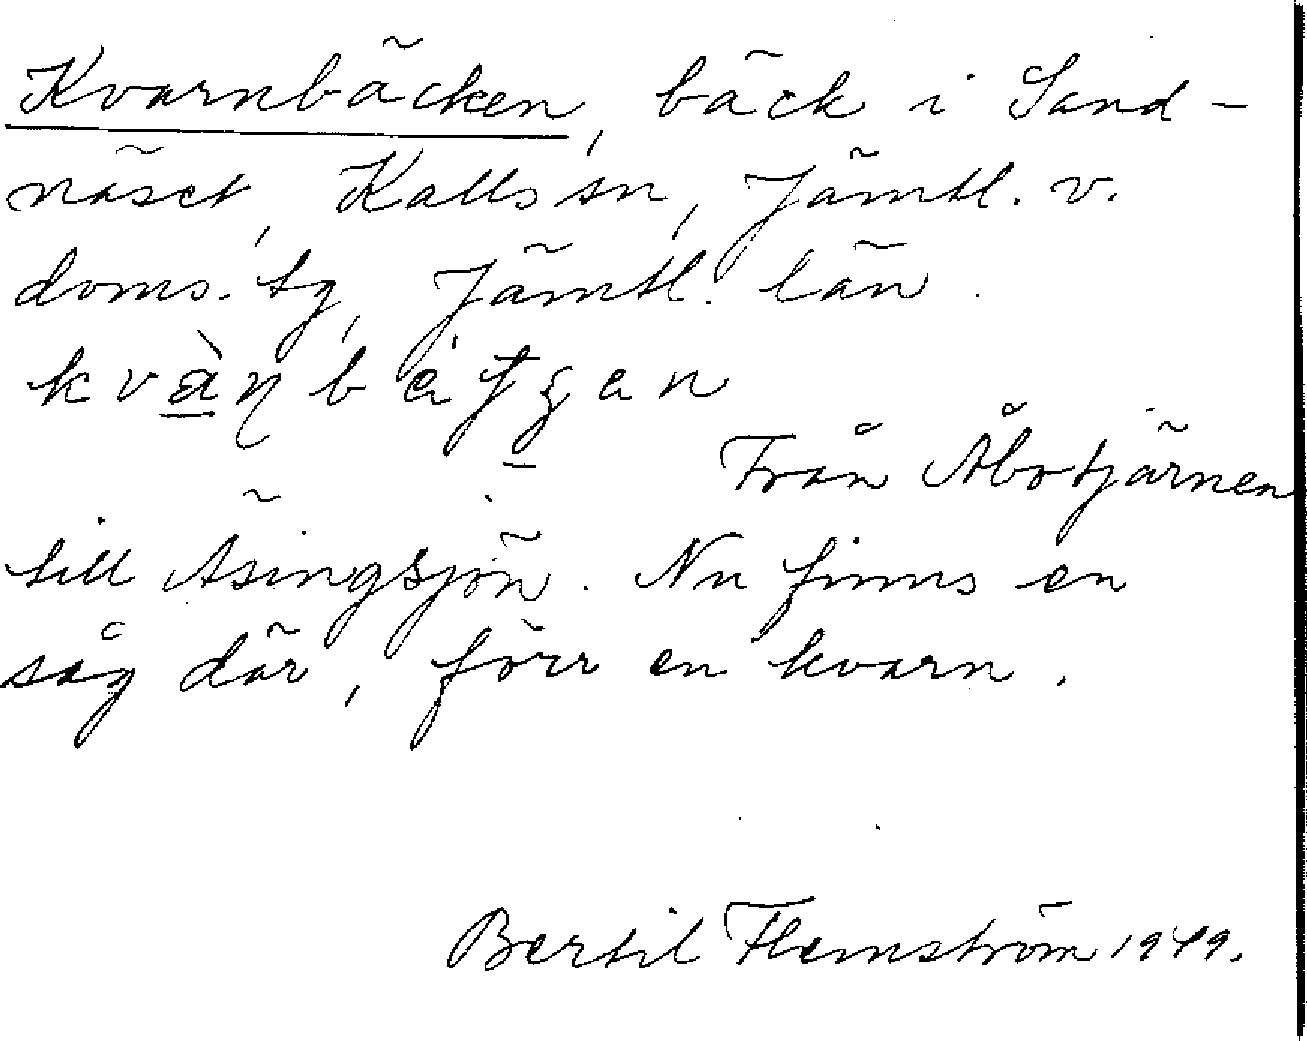 Kvarnbäcken, bäck i Sand-
näset, Kalls sn, Jämtl. v.
doms. tg, Jämtl. län.
Från Åbotjärnen
till Äsingsjön. Nu finns en
såg där, förr en kvarn.
Bertil Flemström 1949.